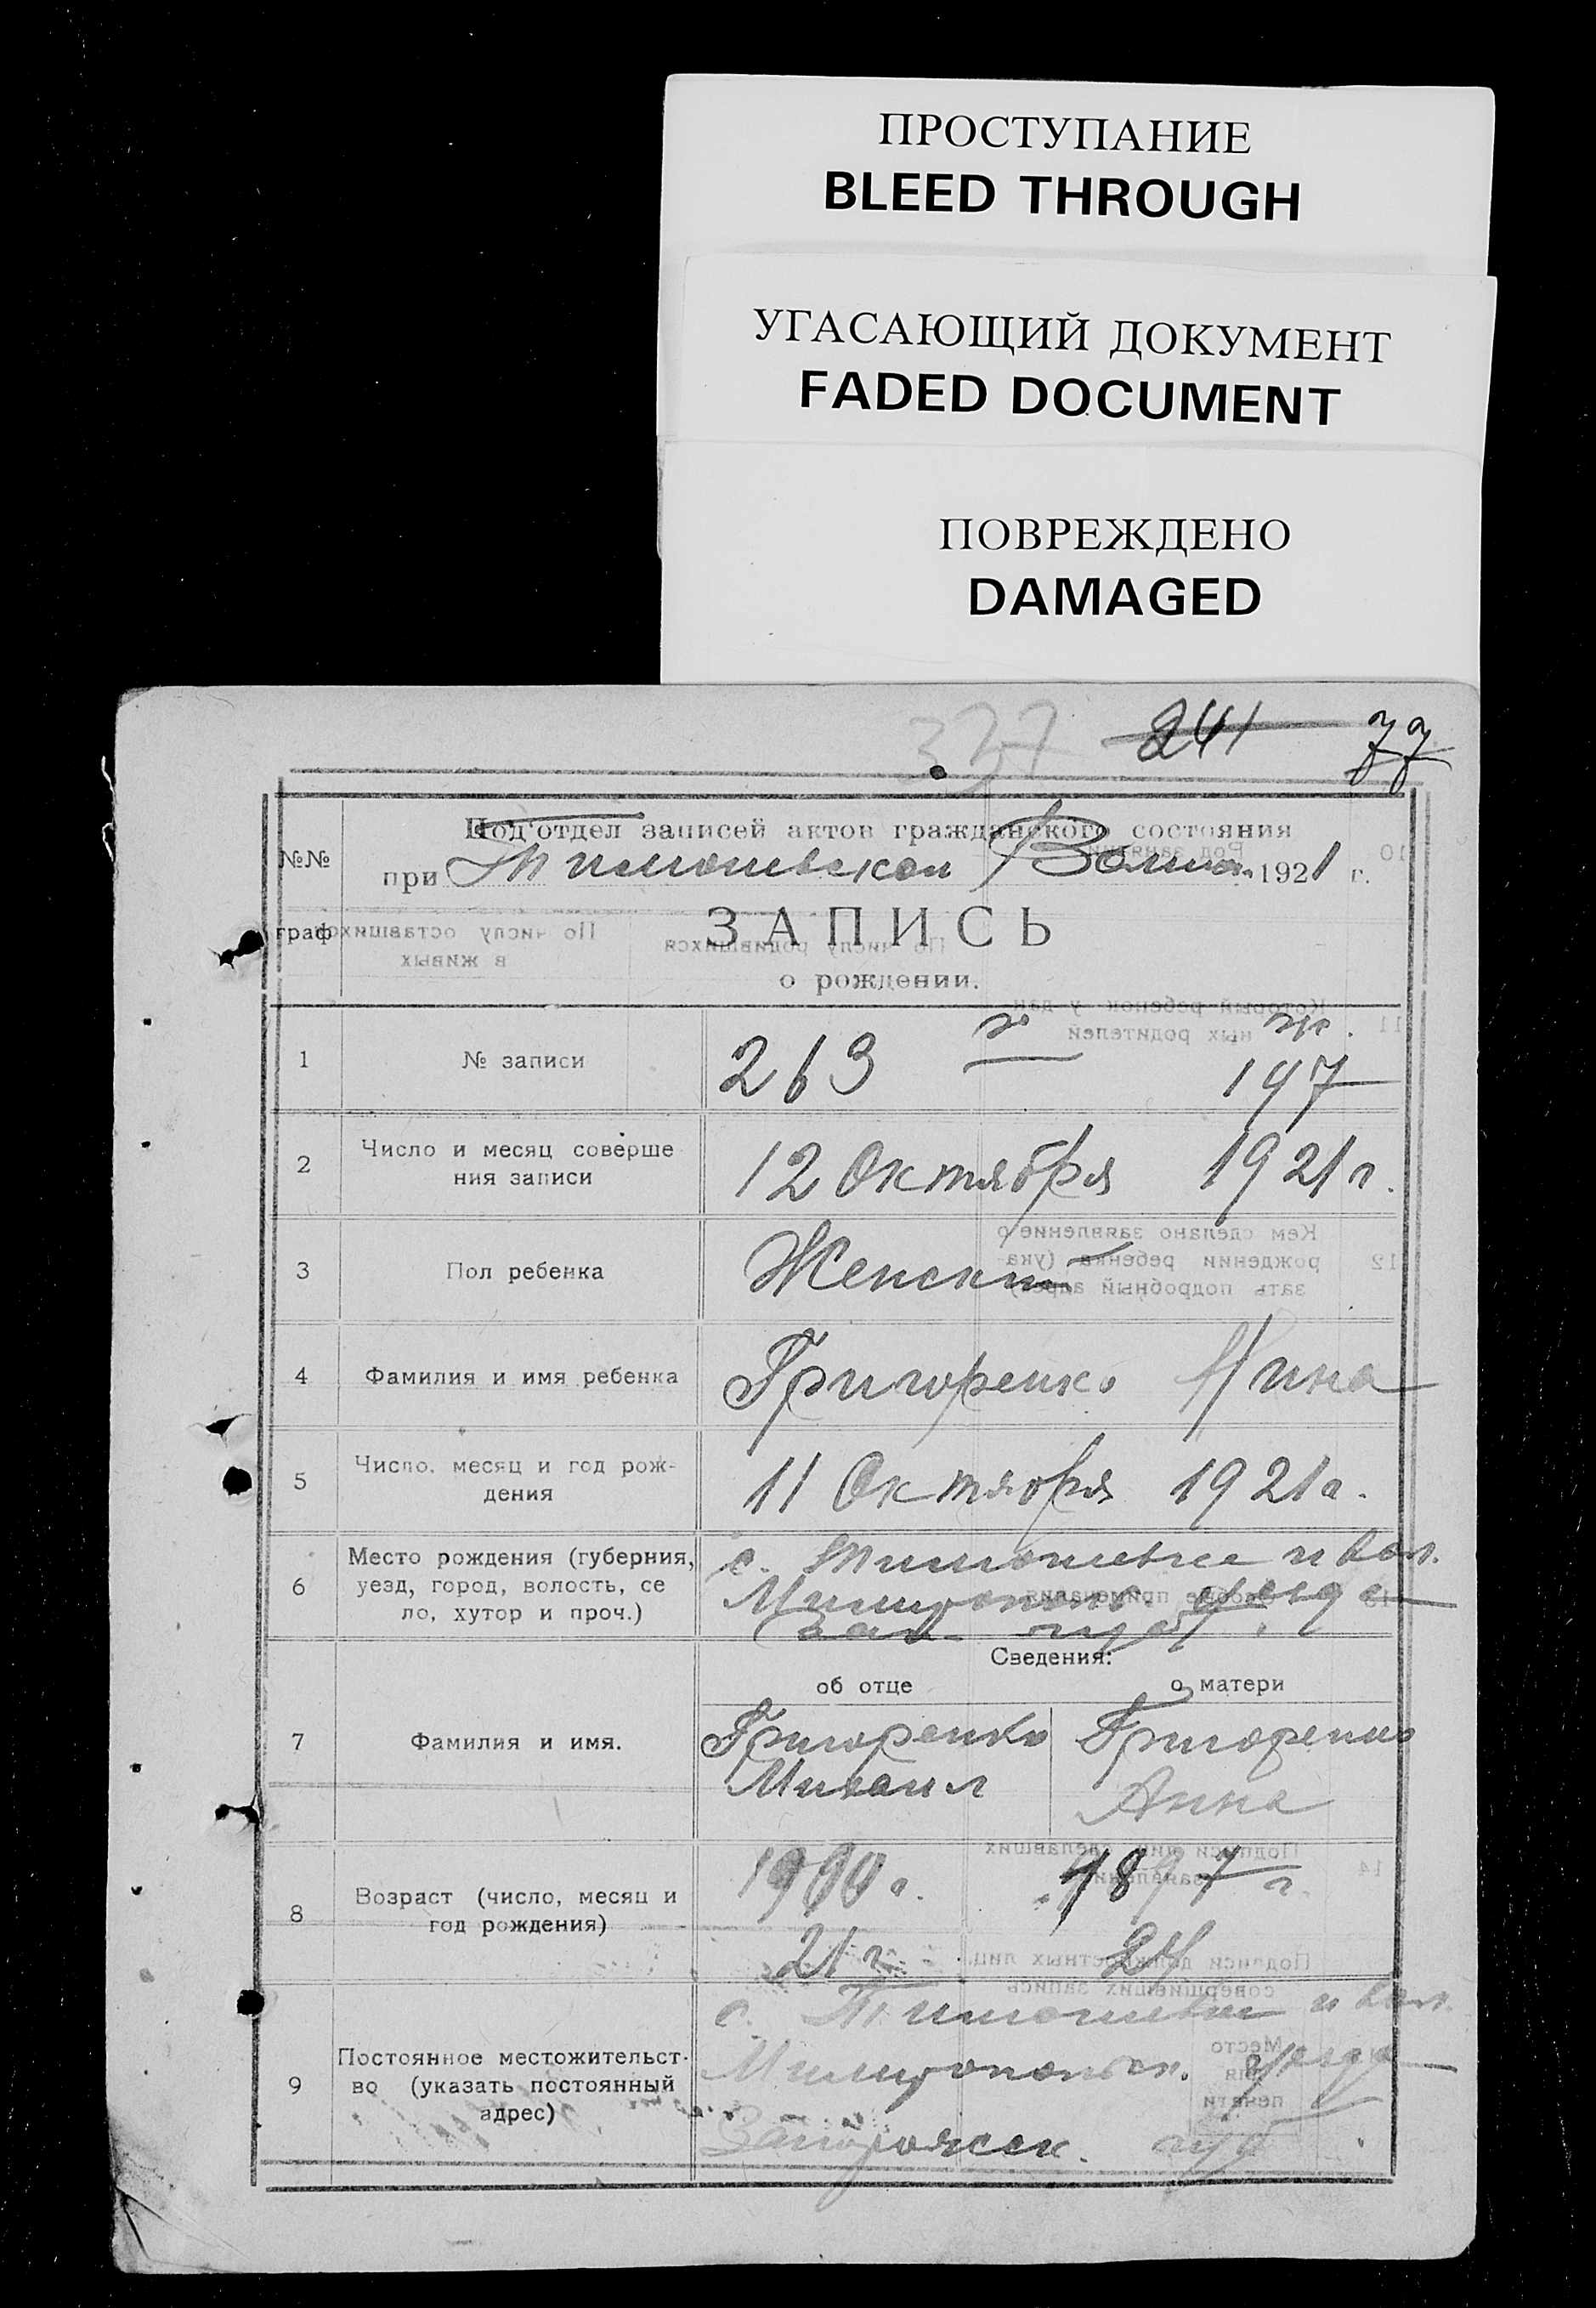 ПРОСТУПАНИЕ
BLEED THROUGH
УГАСАЮЩИЙ ДОКУМЕНТ
FADED DOCUMENT
ПОВРЕЖДЕНО
DAMAGED
337 241 77
Под'отдел записей актов гражданского состояния
№№
при Тимошевском 1921 г.
граф
ЗАПИСЬ
о рождении.
1 № записи 263 ж. 147
2 Число и месяц соверше 12 Октября 1921 г.
ния записи
3 Пол ребенка Женский
4 Фамилия и имя ребенка Григоренко Нина
5 Число, месяц и год рож- 11 Октября 1921 г.
дения
Место рождения (губерния, с. Тимошевке и вол.
6 уезд, город, волость, се Мелитопольск. уезда
ло, хутор и проч.) Зап. губ.
Сведения:
об отце о матери
7 Фамилия и имя. Григоренко Григоренко
Михаил Анна
8 Возраст (число, месяц и 1900 г. 1897 г.
год рождения) 21 г. 24
с. Тимошевки и вол.
9 Постоянное местожительст- Мелитопольск. уезда
во (указать постоянный
адрес) Запорожск. губ.